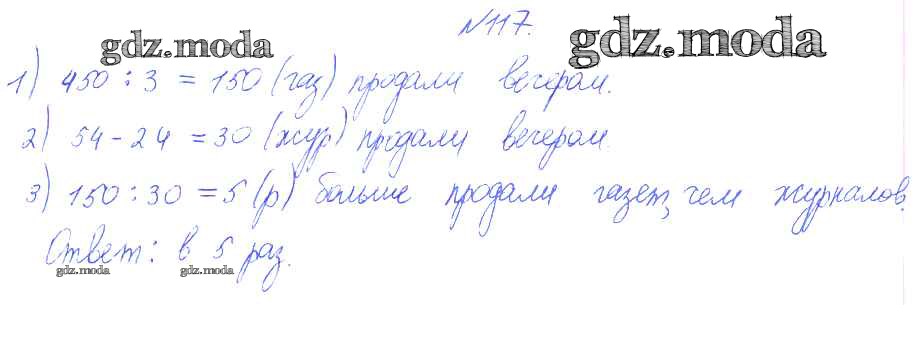 №117.
gdz.moda gdz.moda
1) 450 : 3 = 150 (газ) продали вечером.
2) 54 - 24 = 30 (жур) продали вечером.
3) 150 : 30 = 5 (р) больше продали газет, чем журналов.
Ответ: в 5 раз.
gdz.moda gdz.moda